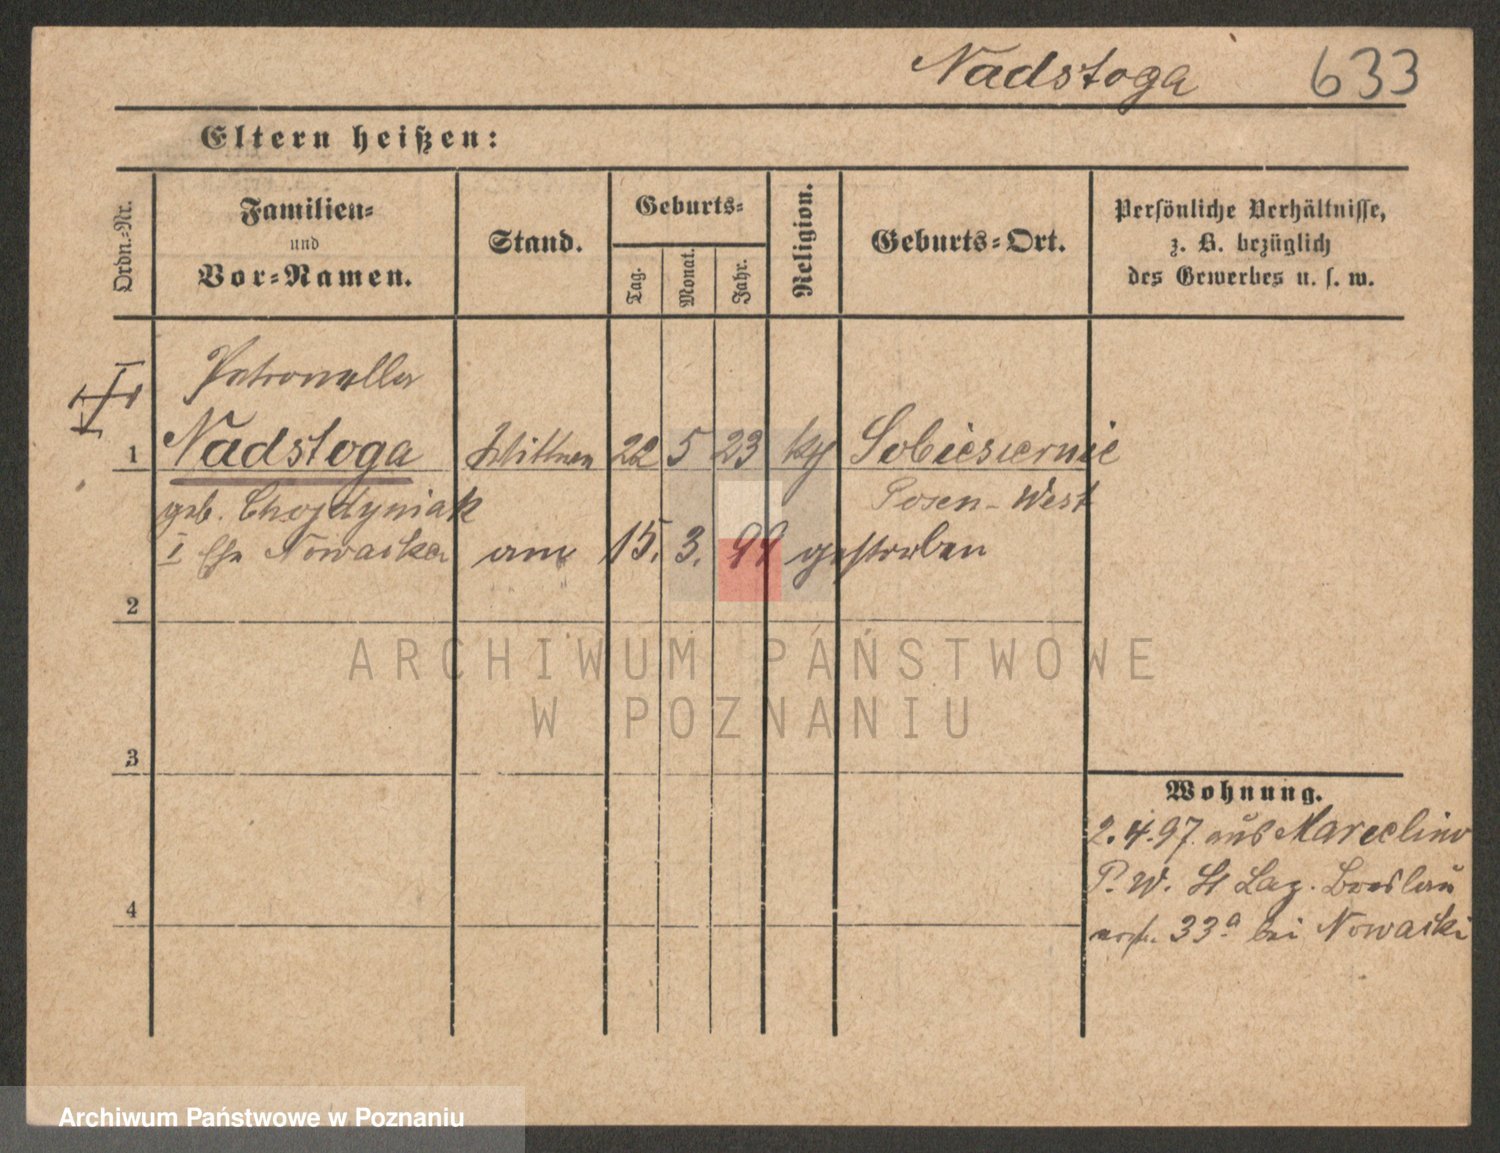 Nadstoga 633
Eltern heißen:
Ordn.-Nr.
Familien-
und
Vor-Namen.
Stand.
Geburts-
Tag.
Monat.
Jahr.
Religion.
Geburts-Ort.
Persönliche Verhältnisse,
z. B. bezüglich
des Gewerbes u. s. w.
Petronella
1 Nadstoga Wittwe 22 5 23 Sobiesiernie
geb. Chojdyniak Posen-West
I Ehe Nowaska am 15. 3. 99 gestorben
2
3
4
Wohnung.
2.4.97 aus Marcelino
P. W. St Laz. Breslau
33a bei Nowaski
ARCHIWUM PAŃSTWOWE
W POZNANIU
Archiwum Państwowe w Poznaniu